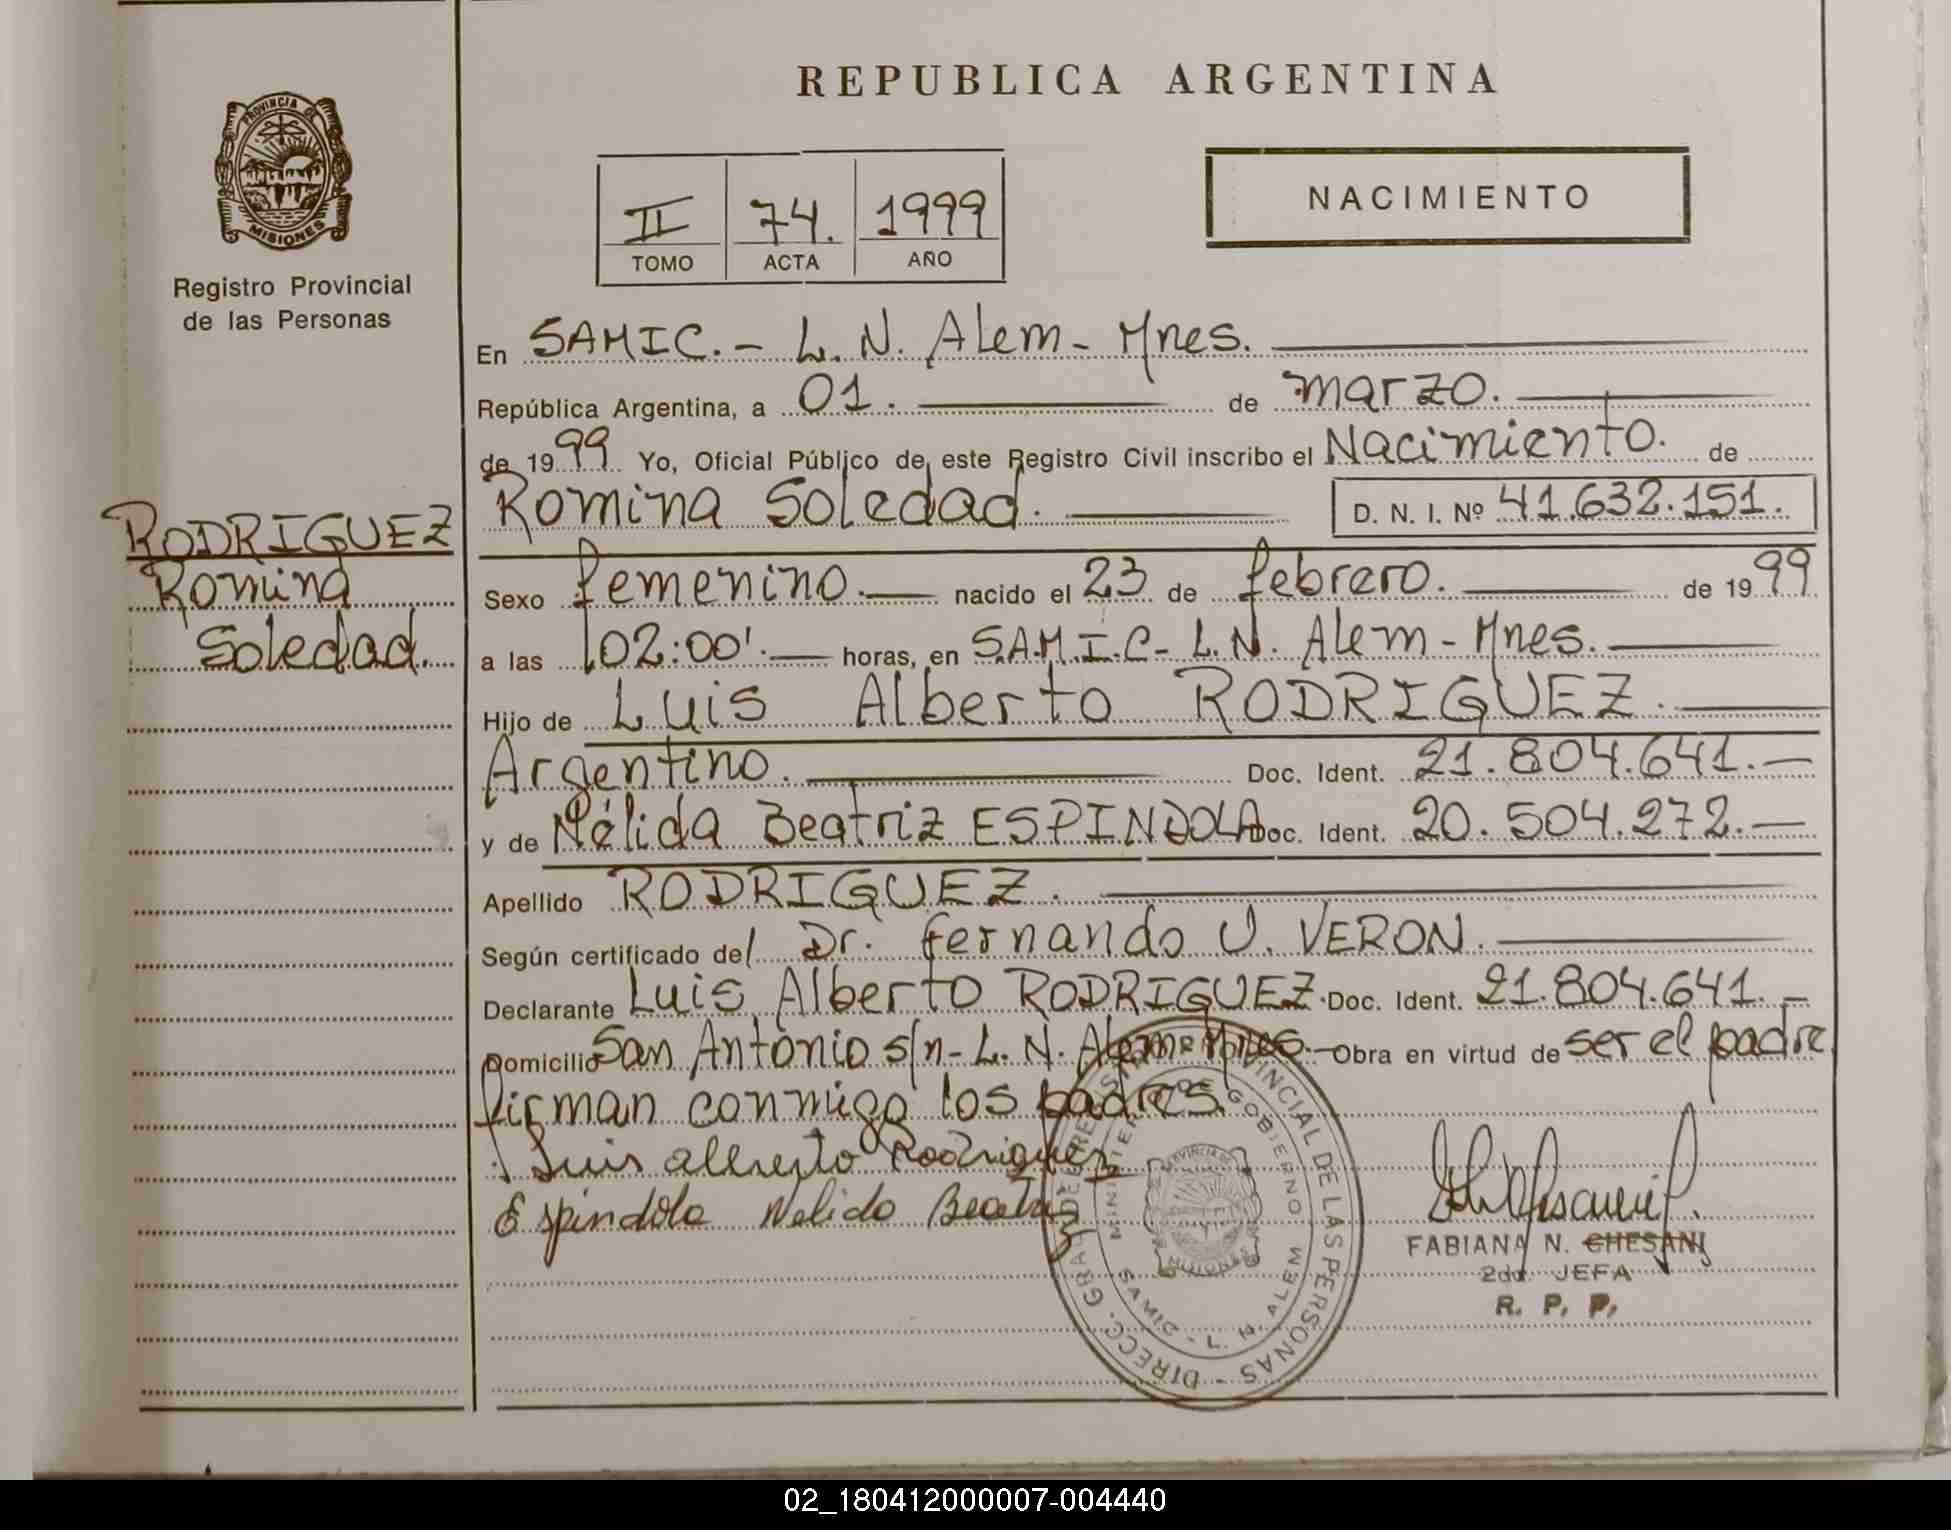 REPUBLICA ARGENTINA
PROVINCIA DE
MISIONES
Registro Provincial
de las Personas
NACIMIENTO
II 74. 1999
TOMO ACTA AÑO
En SAMIC. - L. N. Alem - Mnes.
República Argentina, a 01. de marzo.
de 1999 Yo, Oficial Público de este Registro Civil inscribo el Nacimiento. de
Romina Soledad. D. N. I. Nº 41.632.151.
RODRIGUEZ
Romina
Soledad.
Sexo femenino. nacido el 23 de febrero. de 1999
a las 02:00'. horas, en S.A.M.I.C - L. N. Alem - Mnes.
Hijo de Luis Alberto RODRIGUEZ.
Argentino. Doc. Ident. 21.804.641.-
y de Nélida Beatriz ESPINDOLA Doc. Ident. 20.504.272.-
Apellido RODRIGUEZ.
Según certificado del Dr. Fernando U. VERON.
Declarante Luis Alberto RODRIGUEZ. Doc. Ident. 21.804.641.-
Domicilio San Antonio s/n - L. N. Alem - Mnes. - Obra en virtud de ser el padre
firman conmigo los padres.
Luis alberto Rodriguez
Espindola Nelida Beatriz
DIRECC. GRAL DE REGISTRO PROVINCIAL DE LAS PERSONAS -
MINISTERIO DE GOBIERNO
SAMIC - L. N. ALEM
PROVINCIA DE
MISIONES
FABIANA N. CHESANI
2da. JEFA
R. P. P.
02_180412000007-004440